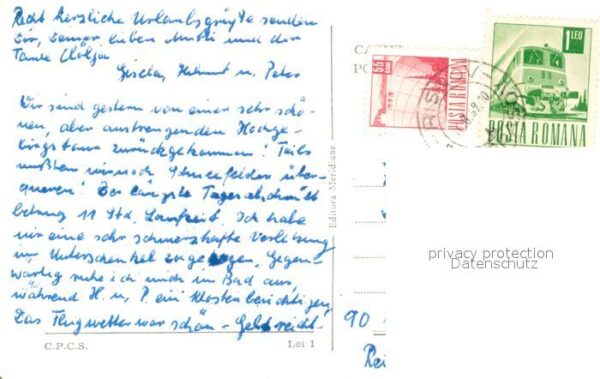 Recht herzliche Urlaubsgrüße senden
Dir, Deiner lieben Mutti und der
Tante
Gisela, Helmut u. Peter
Wir sind gestern von einer sehr schö-
nen, aber anstrengenden Hochge-
birgstour zurückgekommen! Teils
mußten wir noch Schneefelder über-
queren! Der längste Tagesabschnitt
betrug 11 Std. Laufzeit. Ich habe
mir eine sehr schmerzhafte Verletzung
im Unterschenkel zugezogen. Gegen-
wärtig ruhe ich mich im Bad aus,
während H. u. P. ein Kloster besichtigen.
Das Flugwetter war schön - Geld reicht.
C.P.C.S.
Lei 1
Editura Meridiane
CA
PO
55 BANI
POSTA ROMANA
1 LEU
POSTA ROMANA
privacy protection
Datenschutz
90
Rei